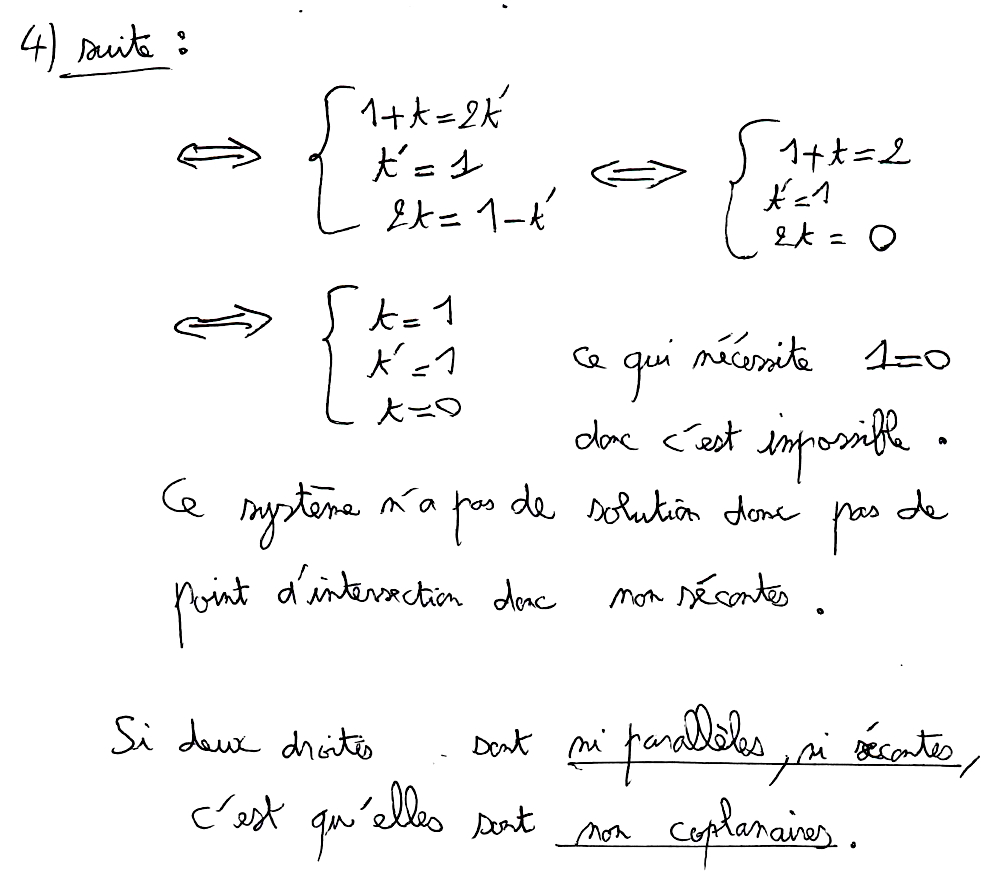 4) suite :
⟺ { 1+k=2k'
k'=1
2k=1-k'
⟺ { 1+k=2
k'=1
2k=0
⟺ { k=1
k'=1
k=0
ce qui nécessite 1=0
donc c'est impossible.
Ce système n'a pas de solution donc pas de
point d'intersection donc non sécantes.
Si deux droites sont ni parallèles, ni sécantes,
c'est qu'elles sont non coplanaires.